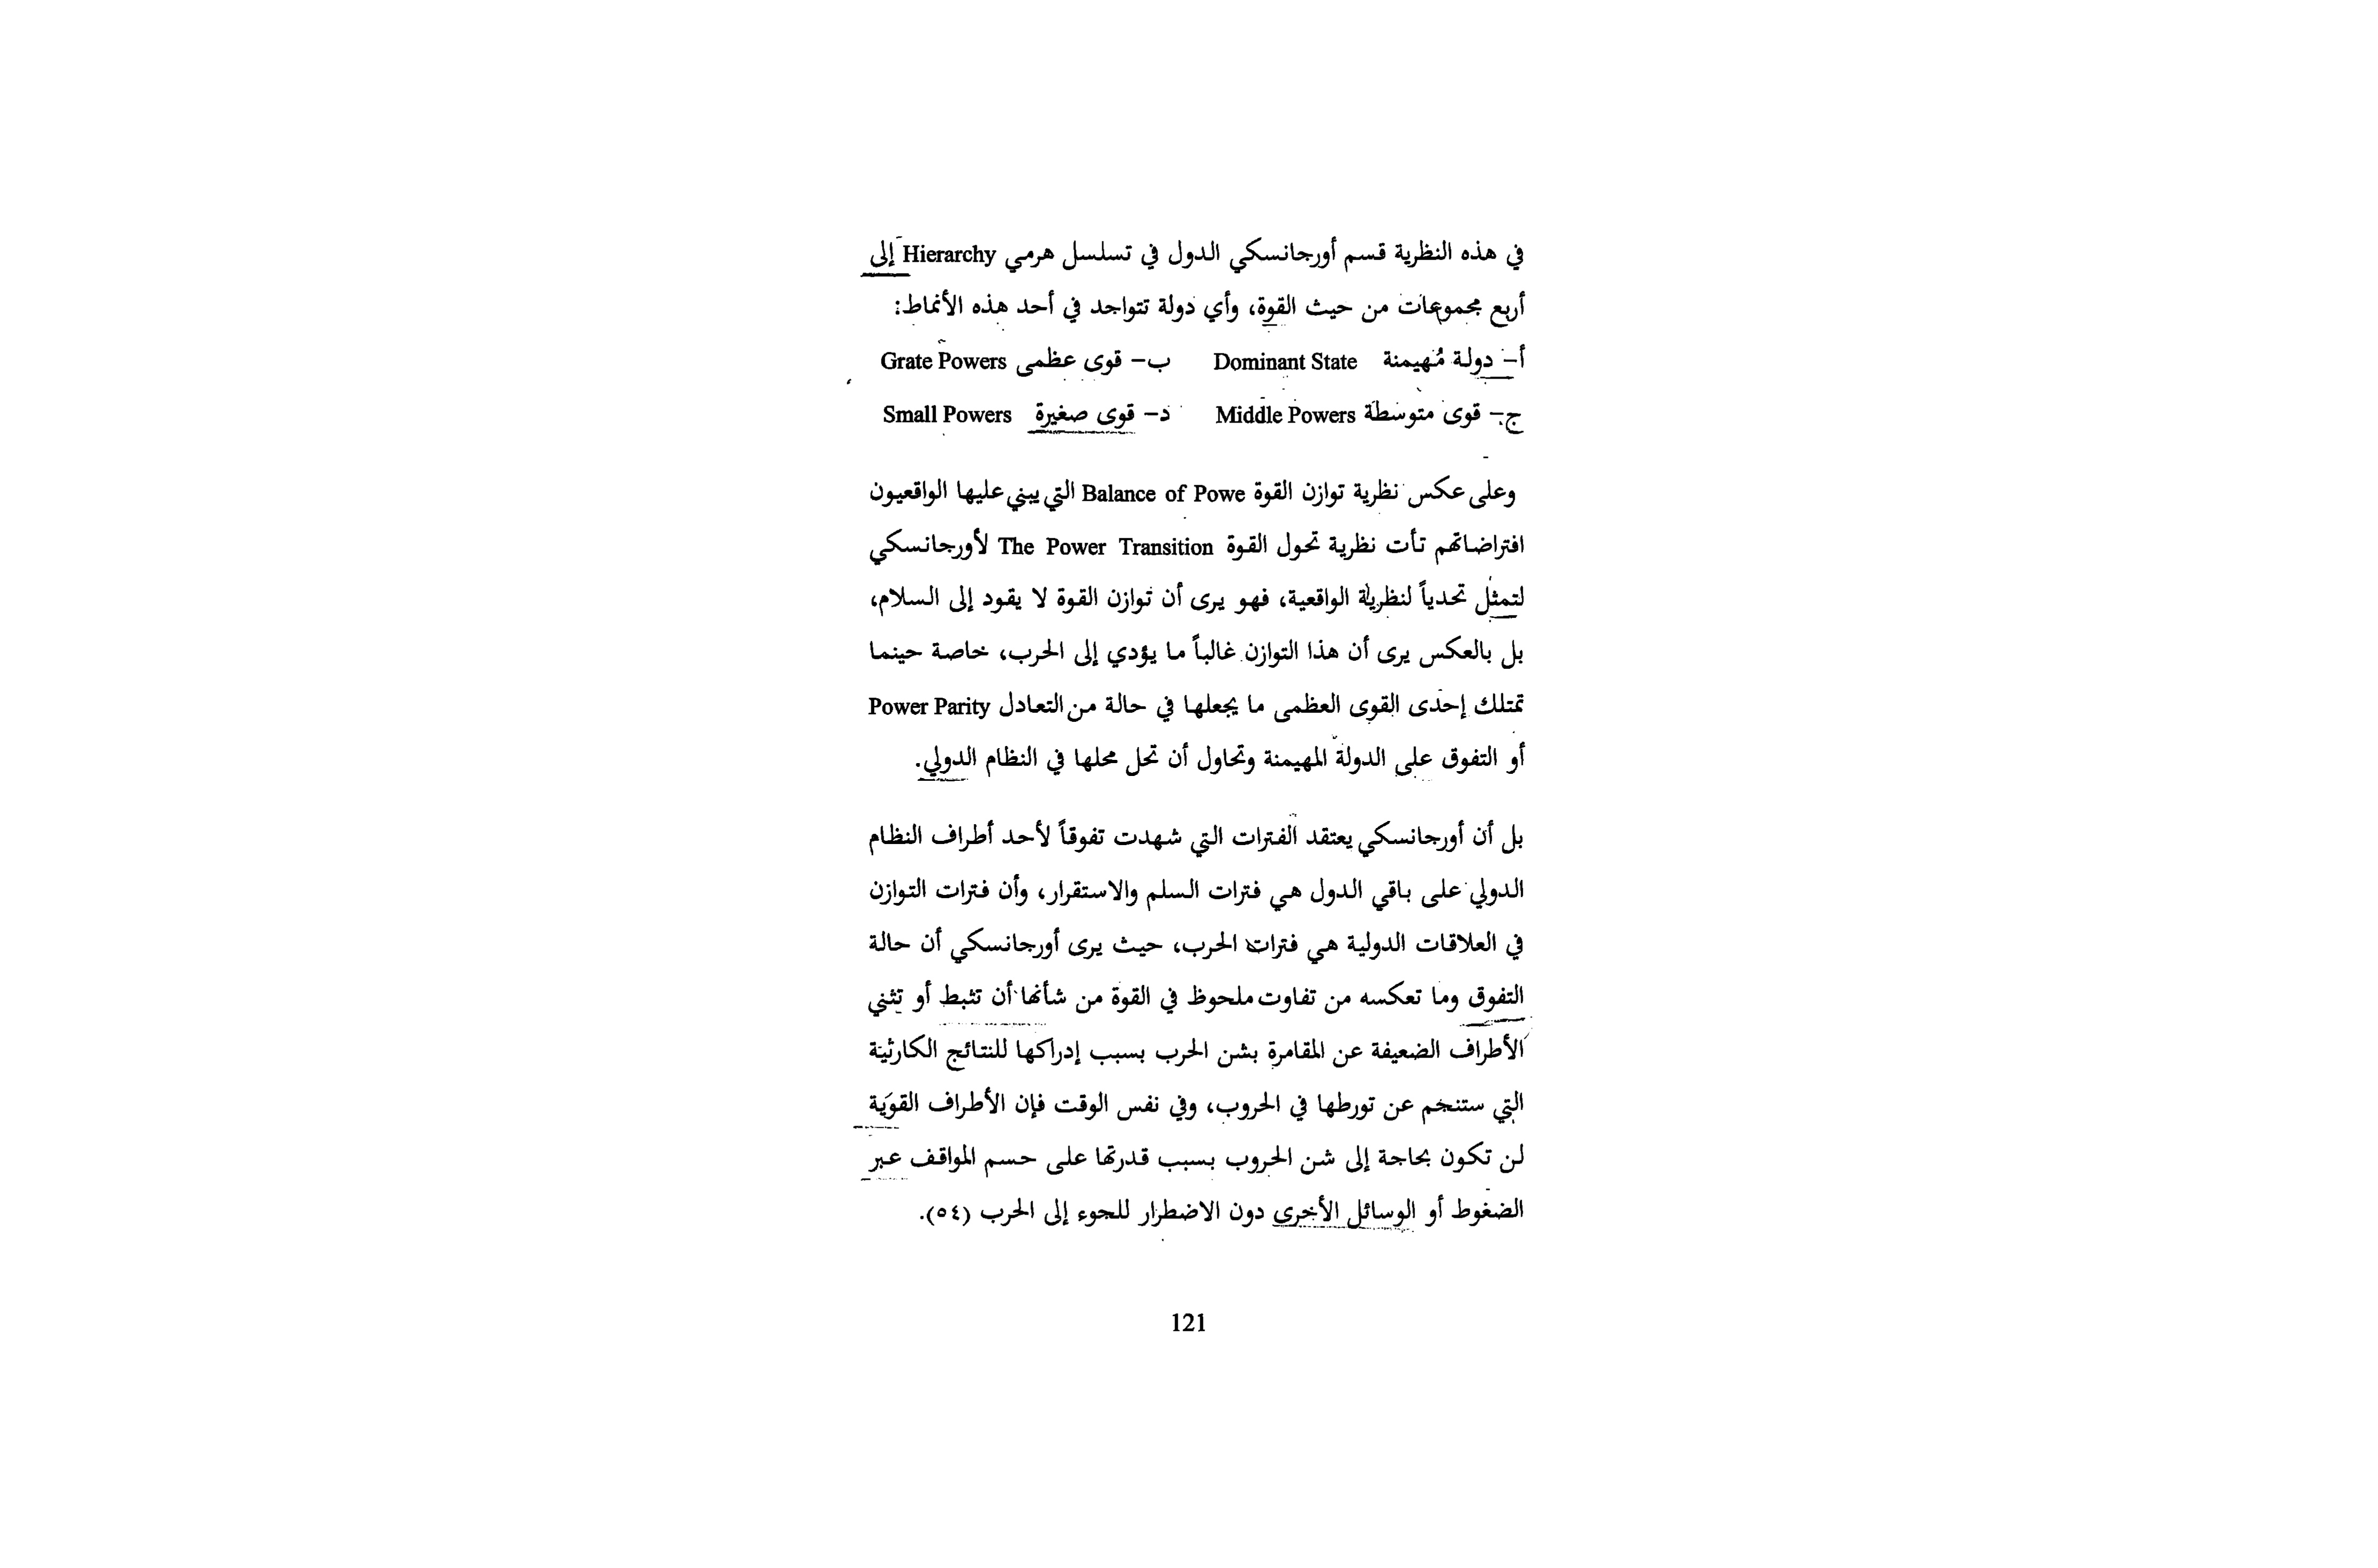 في هذه النظرية قسم أورجانسكي الدول في تسلسل هرمي Hierarchy إلى
أربع مجموعات من حيث القوة، وأي دولة تتواجد في أحد هذه الأنماط:
أ– دولة مُهيمنة Dominant State ب– قوى عظمى Grate Powers
ج– قوى متوسطة Middle Powers د– قوى صغيرة Small Powers
وعلى عكس نظرية توازن القوة Balance of Powe التي يبني عليها الواقعيون
افتراضاتهم تأت نظرية تحول القوة The Power Transition لأورجانسكي
لتمثل تحدياً لنظرية الواقعية، فهو يرى أن توازن القوة لا يقود إلى السلام،
بل بالعكس يرى أن هذا التوازن غالباً ما يؤدي إلى الحرب، خاصة حينما
تمتلك إحدى القوى العظمى ما يجعلها في حالة من التعادل Power Parity
أو التفوق على الدولة المهيمنة وتحاول أن تحل محلها في النظام الدولي.
بل أن أورجانسكي يعتقد الفترات التي شهدت تفوقاً لأحد أطراف النظام
الدولي على باقي الدول هي فترات السلم والاستقرار، وأن فترات التوازن
في العلاقات الدولية هي فترات الحرب، حيث يرى أورجانسكي أن حالة
التفوق وما تعكسه من تفاوت ملحوظ في القوة من شأنها أن تثبط أو تثني
الأطراف الضعيفة عن المقامرة بشن الحرب بسبب إدراكها للنتائج الكارثية
التي ستنجم عن تورطها في الحروب، وفي نفس الوقت فإن الأطراف القوية
لن تكون بحاجة إلى شن الحروب بسبب قدرتها على حسم المواقف عبر
الضغوط أو الوسائل الأخرى دون الاضطرار للجوء إلى الحرب (٥٤).
121